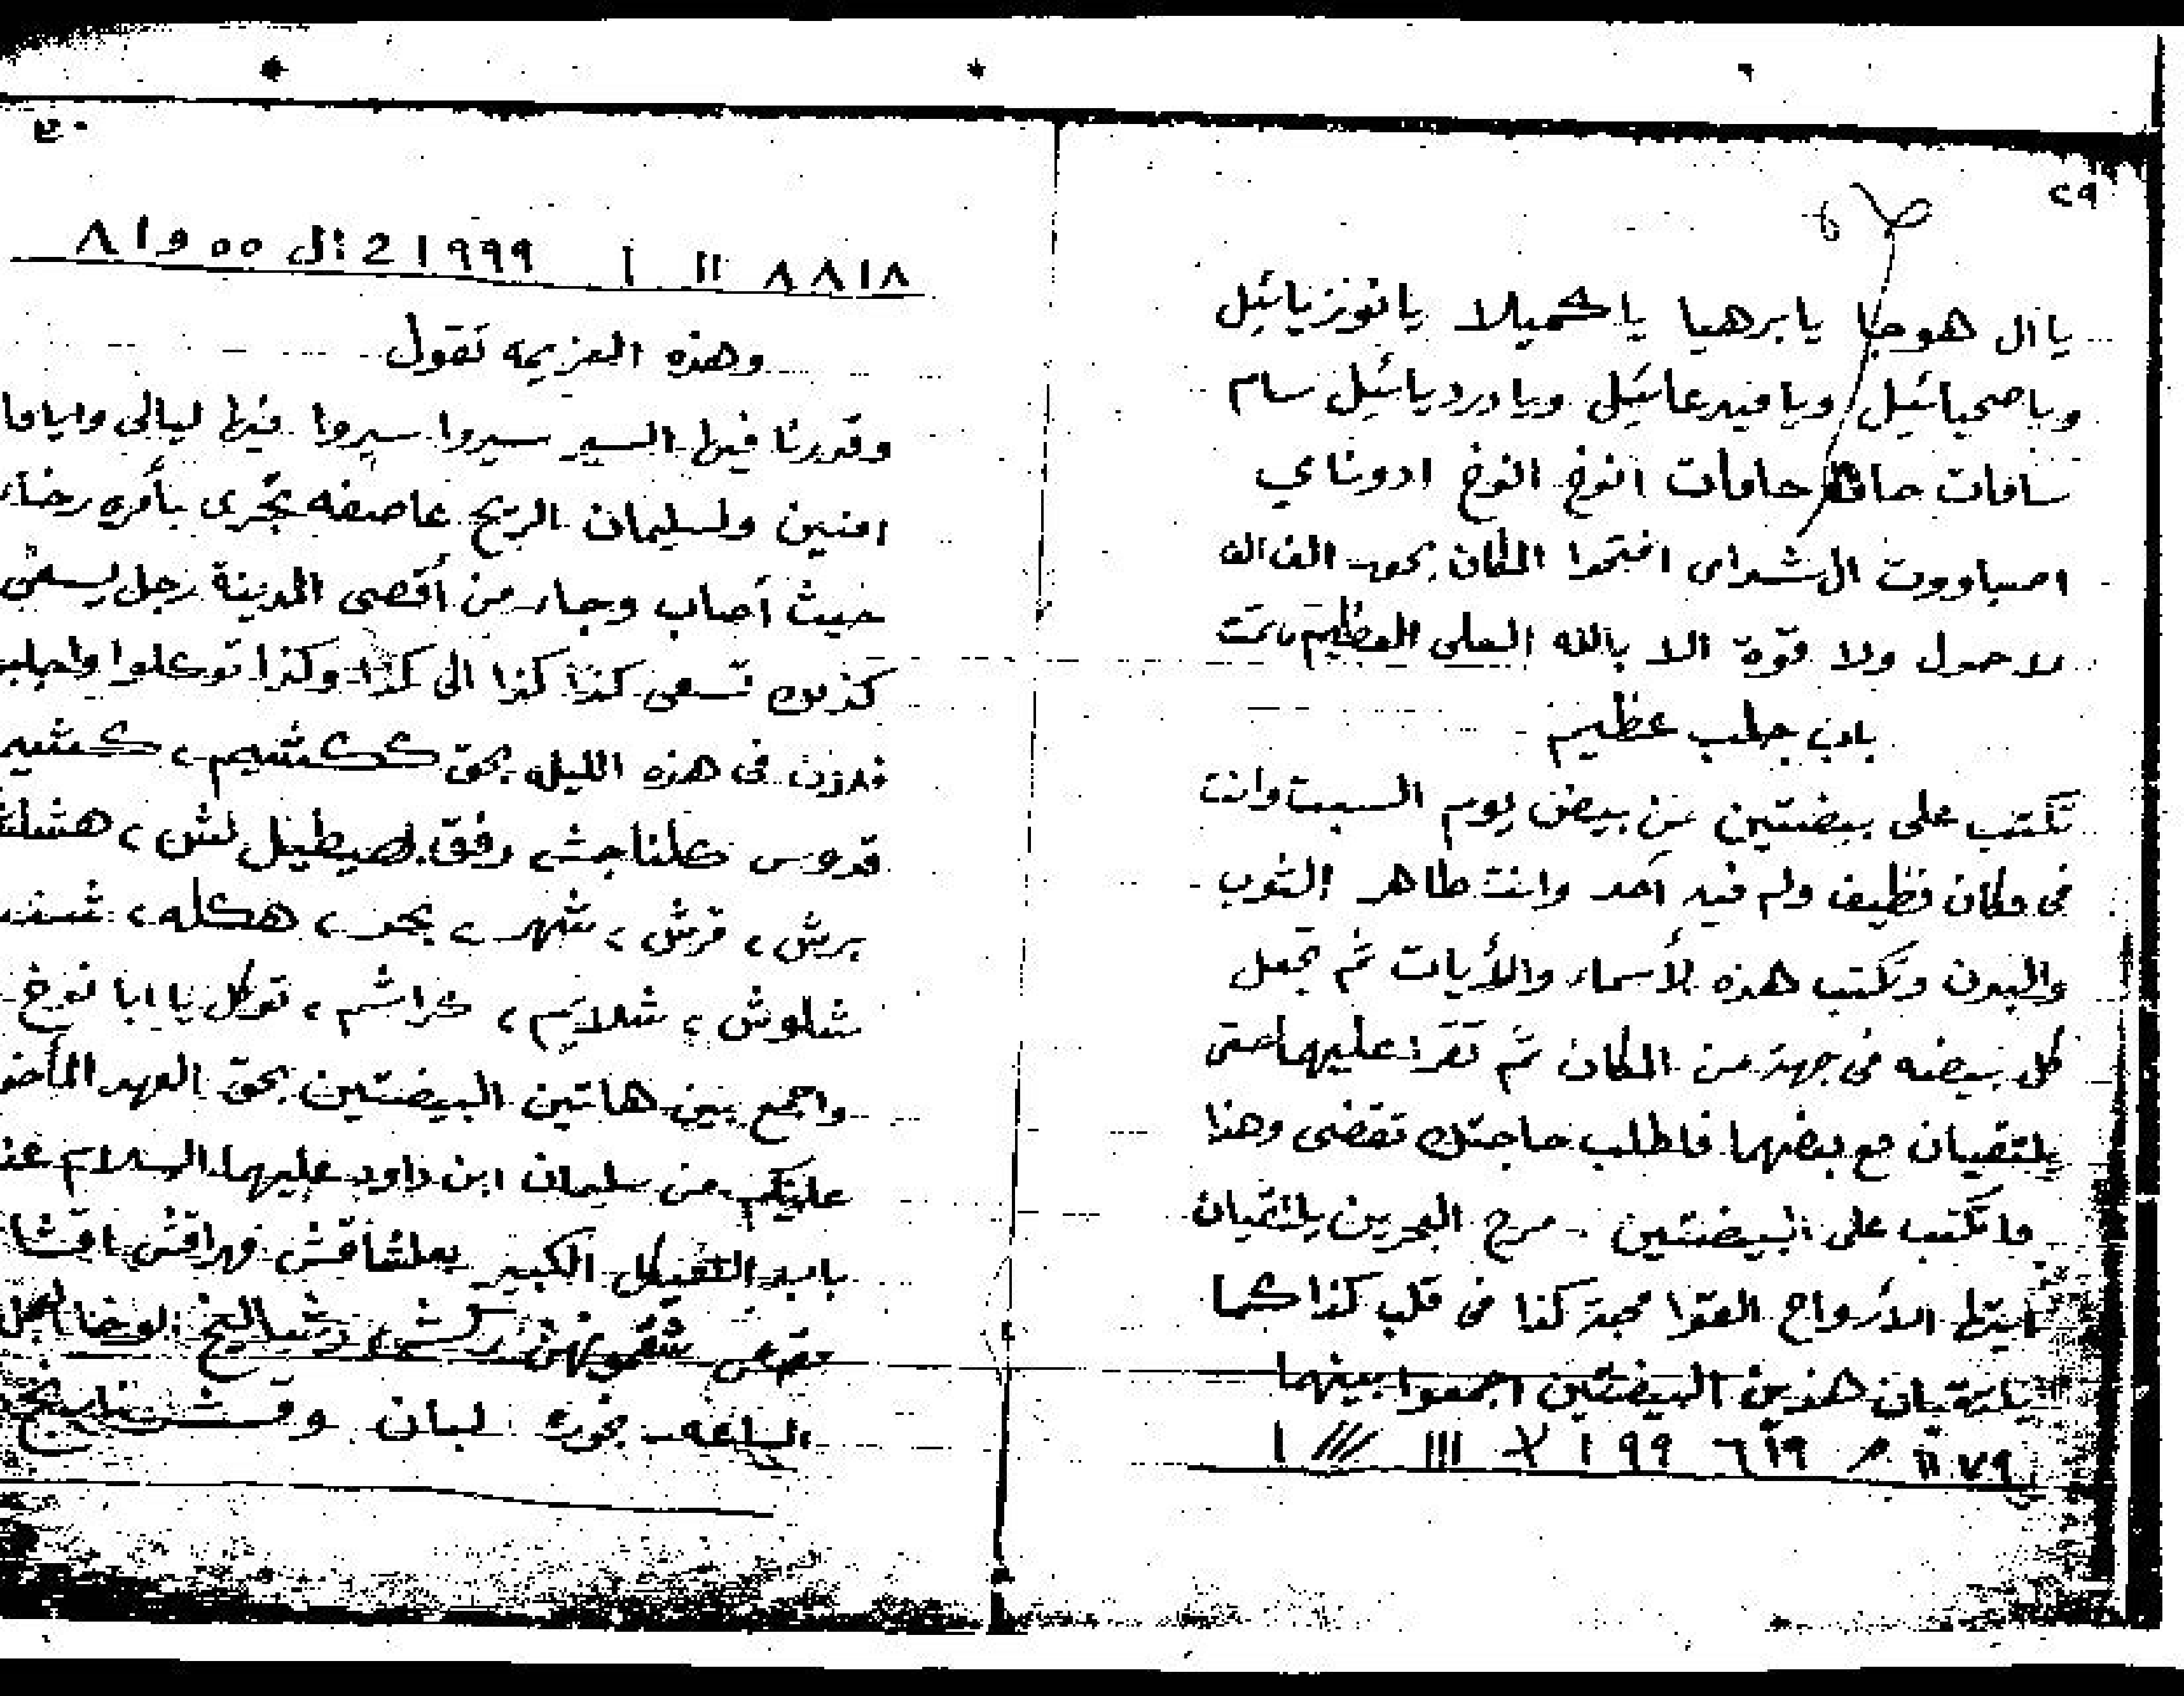 ٢٩
يا ال هوجا يا برهيا يا كميلا يا نوزيائيل
ويا صحيائيل ويا فيدعائيل ويا دردیائيل سام
سامات حامات انوخ انوخ ادوناي
اصباووت ال شداى افتحوا المكان بحق الف الف
لا حول ولا قوة الا بالله العلى العظيم تمت
باب جلب عظيم
تكتب على بيضتين من بيض يوم السبت وانت
فى مكان نظيف ولم فيه أحد وانت طاهر الثوب
والبدن وتكتب هذه الأسماء والأيات ثم تجعل
كل بيضه فى جهة من المكان ثم تقرا عليهما حتى
يلتقيان مع بعضهما فاطلب حاجتك تقضى وهذا
ما تكتب على البيضتين . مرج البحرين يلتقيان
ايتها الأرواح القوا محبة كذا فى قلب كذا كما
يلتقيان هذين البيضتين اجمعوا بينهما
٣٠
٨٨١٨ ١١ ١ ١٩٩٩ 2 ال ٥٥ و١ ٨
وهذه العزيمه تقول
وقدرنا فيها السير سيروا سيروا فيها ليالى واياما
امنين ولسليمان الريح عاصفه تجرى بأمره رخاء
حيث أصاب وجاء من أقصى المدينة رجل يسعى
كذلك تسعى كذا كذا الى كذا وكذا توكلوا واجلبو
فى هذه الليله بحق ككشيم ، كشيم
قدوس كلناجش رفق لصيطيل لش ، هشلت
برش ، قرش ، شهر ، بحر ، هكله ،
شلوش ، شلايم ، خراشم ، توكل يا ابا نوخ
واجمع بين هاتين البيضتين بحق العهد المأخو
عليكم من سليمان ابن داود عليهما السلام عند
باب الهيكل الكبير بعلشاقش مهراقش اقشا
شقمونهش ركشى الوحا العجل
الساعه بخوره لبان وقشر